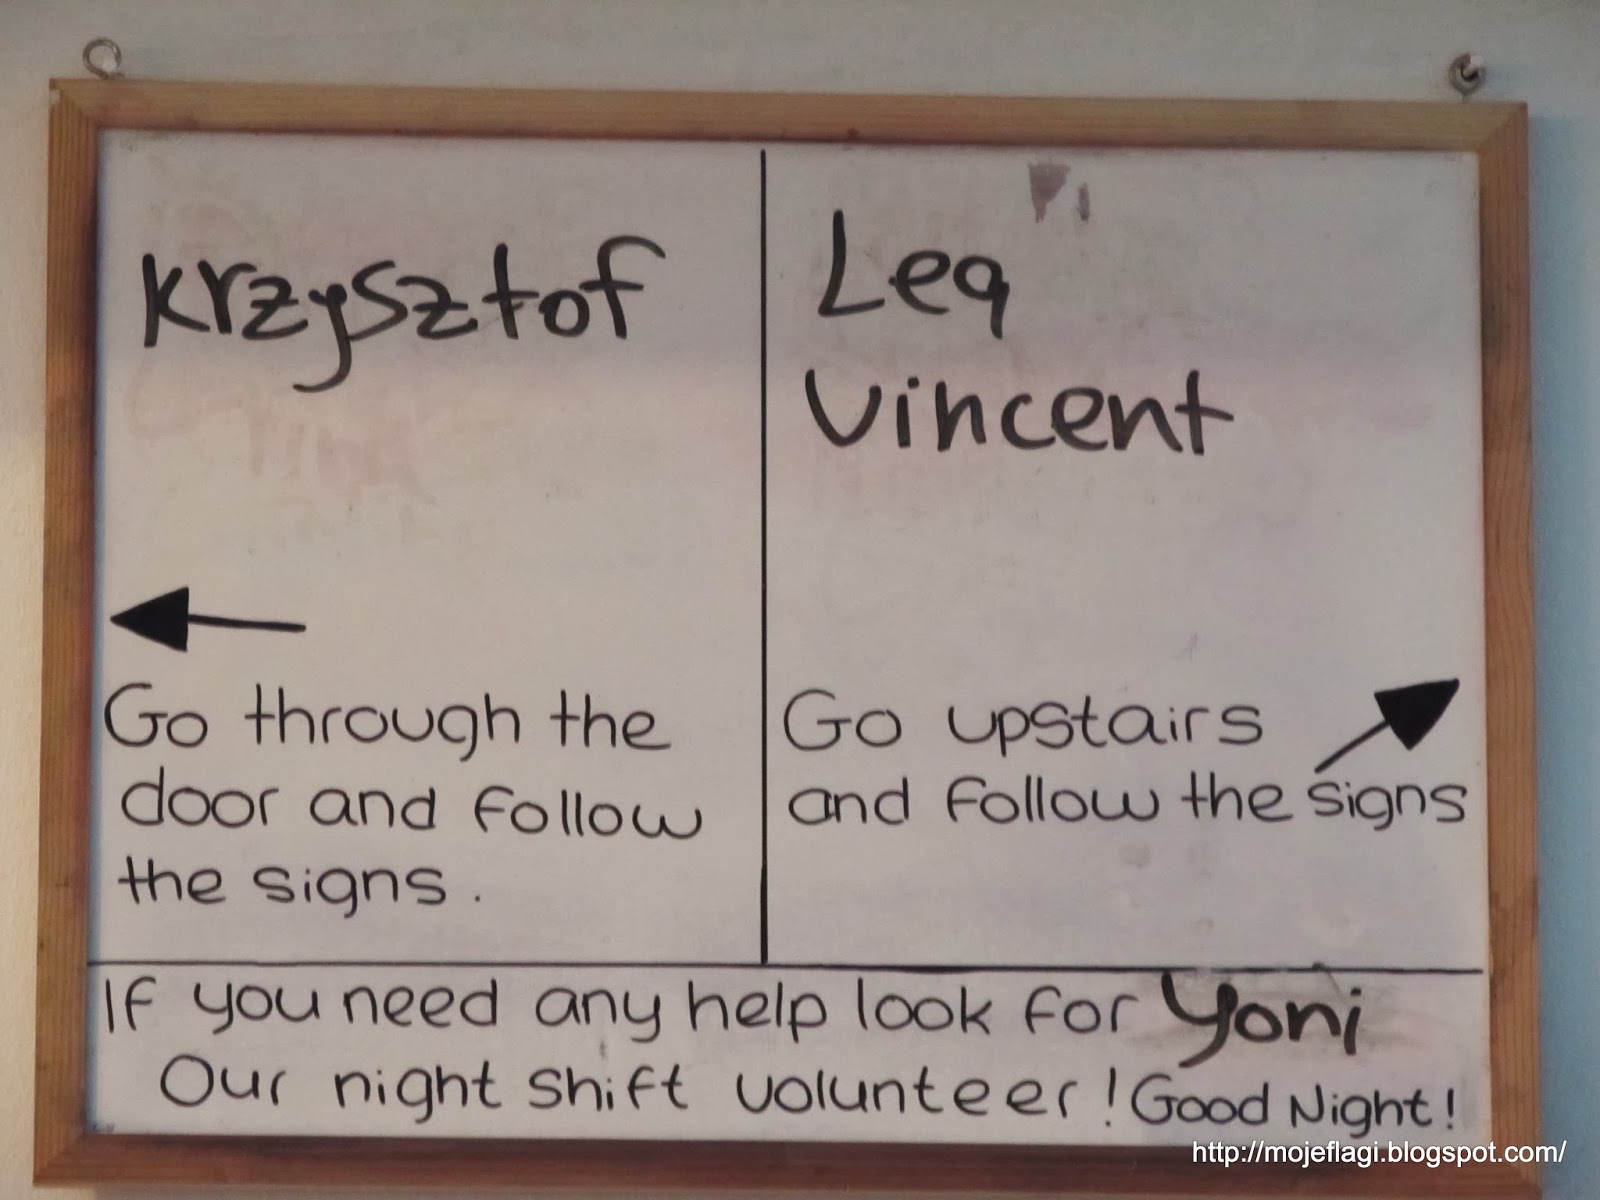 Krzysztof
Go through the
door and follow
the signs.
Lea
Vincent
Go upstairs
and follow the signs
If you need any help look for Yoni
Our night shift volunteer! Good Night!
http://mojeflagi.blogspot.com/